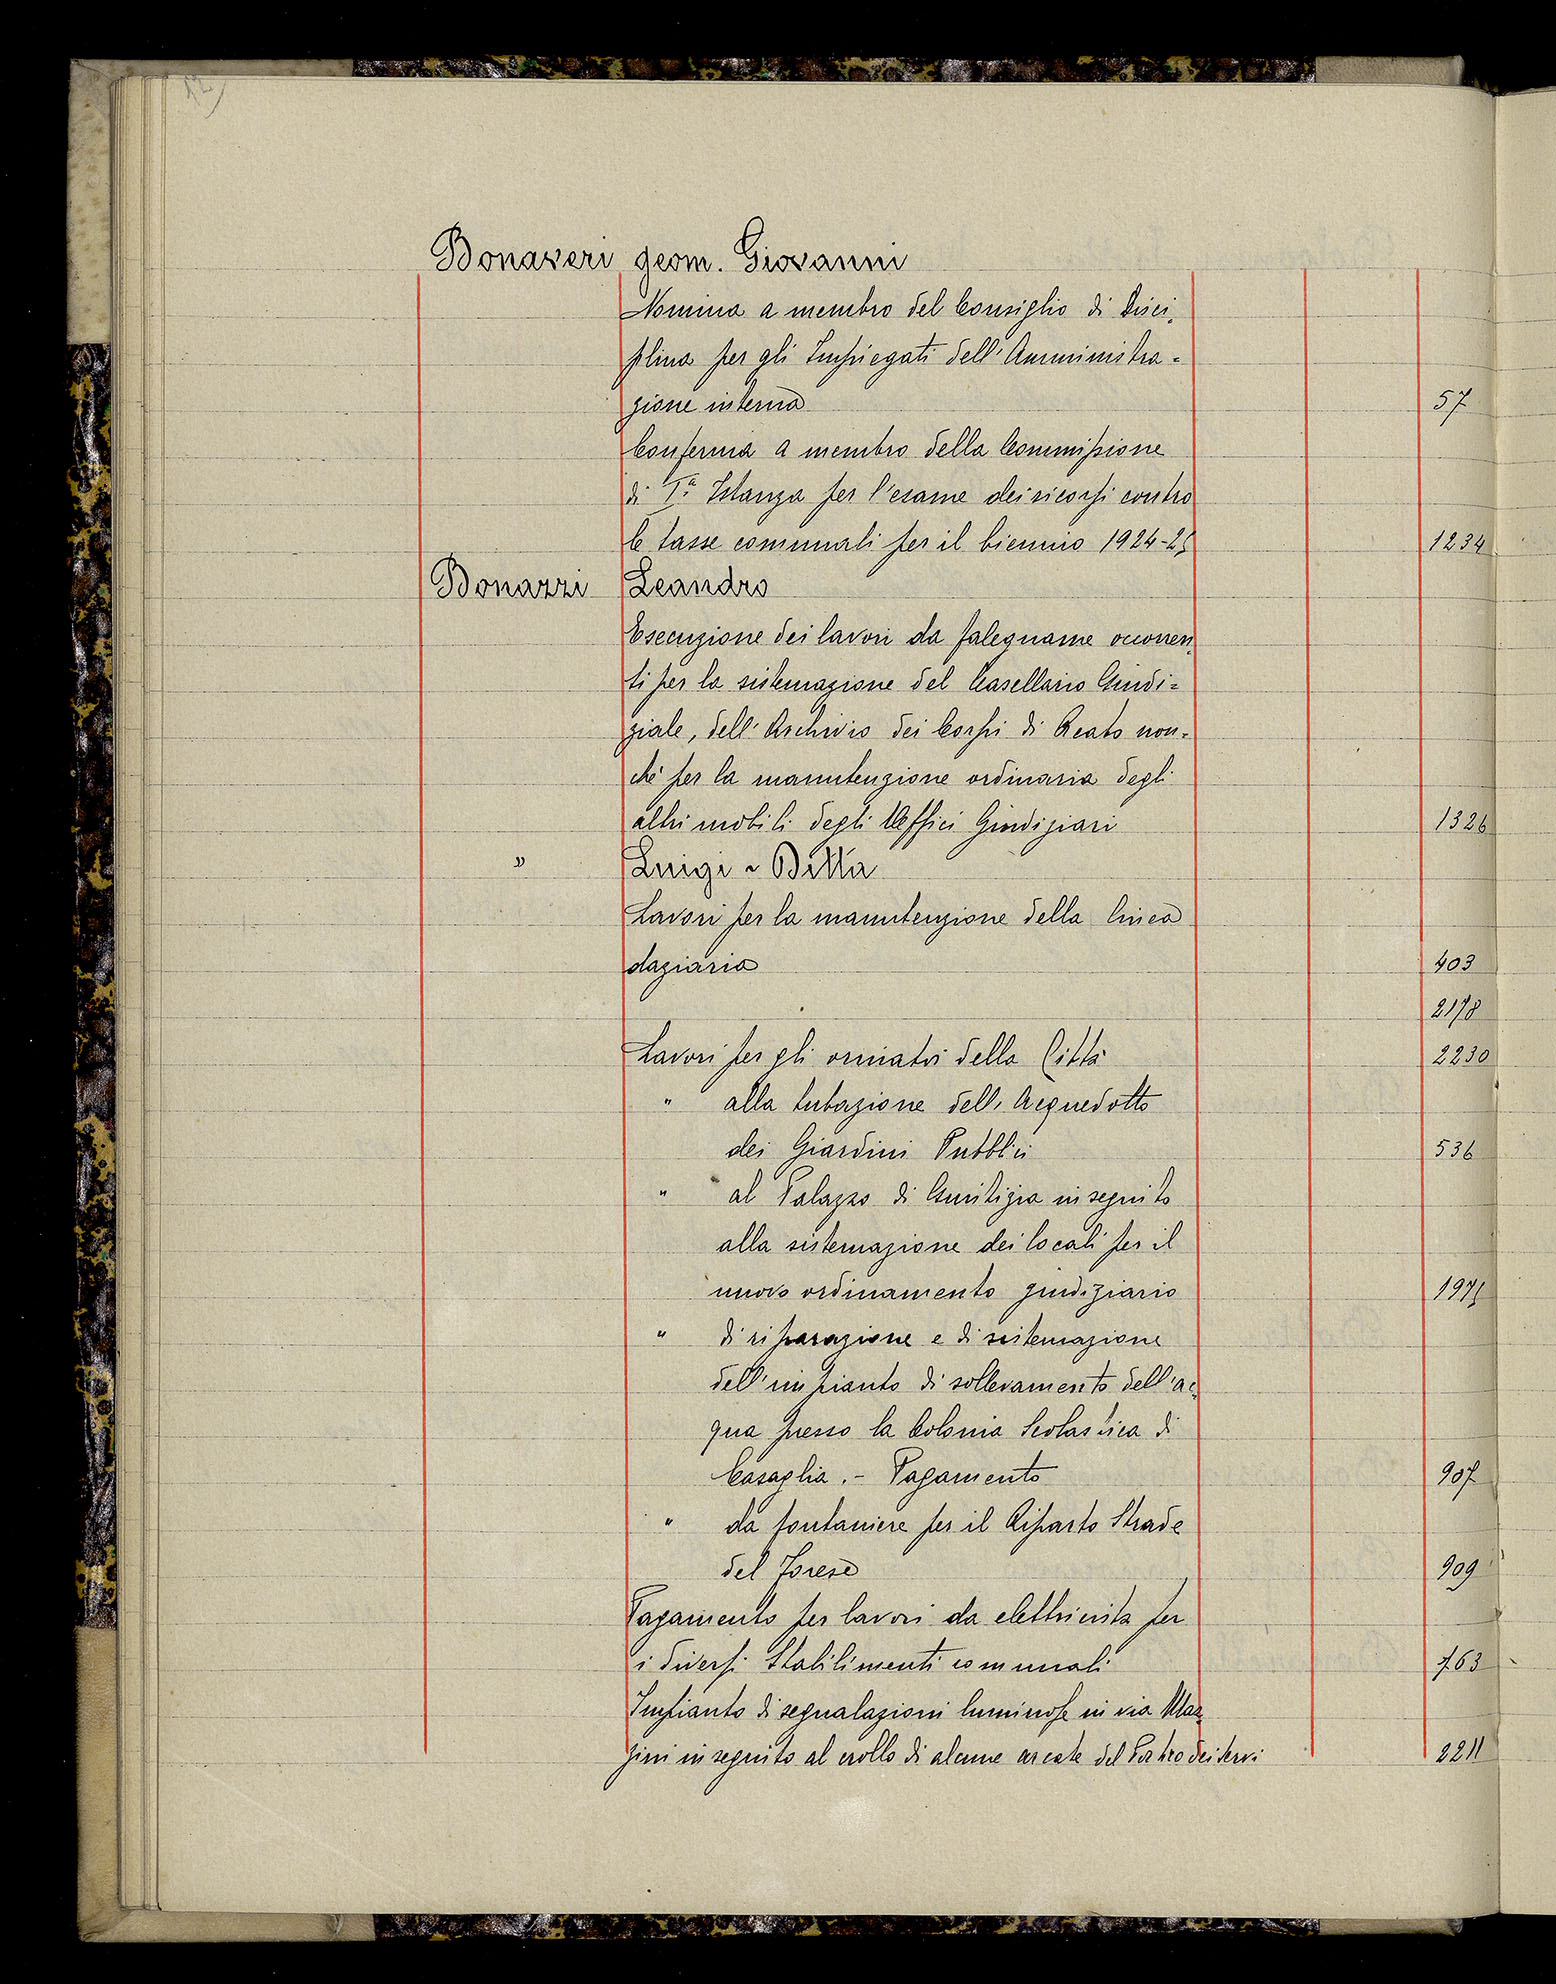 12)
Bonaveri geom. Giovanni
Nomina a membro del Consiglio di Disci,
plina per gli Impiegati dell'Amministra=
zione interna 57
Conferma a membro della Commissione
di Iª Istanza per l'esame dei ricorsi contro
le tasse comunali per il biennio 1924-25 1234
Bonazzi Leandro
Esecuzione dei lavori da falegname occorren,
ti per la sistemazione del Casellario Giudi=
ziale, dell'Archivio dei Corpi di Reato non=
chè per la manutenzione ordinaria degli
altri mobili degli Uffici Giudiziari 1326
" Luigi - Ditta
Lavori per la manutenzione della linea
daziaria 403
2178
Lavori per gli orinatoi della Città 2230
" alla tubazione dell'Acquedotto
dei Giardini Pubblici 536
" al Palazzo di Giustizia in seguito
alla sistemazione dei locali per il
nuovo ordinamento giudiziario 1975
" di riparazione e di sistemazione
dell'impianto di sollevamento dell'ac,
qua presso la Colonia Scolastica di
Casaglia. - Pagamento 907
" da fontaniere per il Riparto Strade
del Forese 909
Pagamento per lavori da elettricista per
i diversi Stabilimenti comunali 763
Impianto di segnalazioni luminose in via Maz,
zini in seguito al crollo di alcune arcate del Portico dei Servi 2211